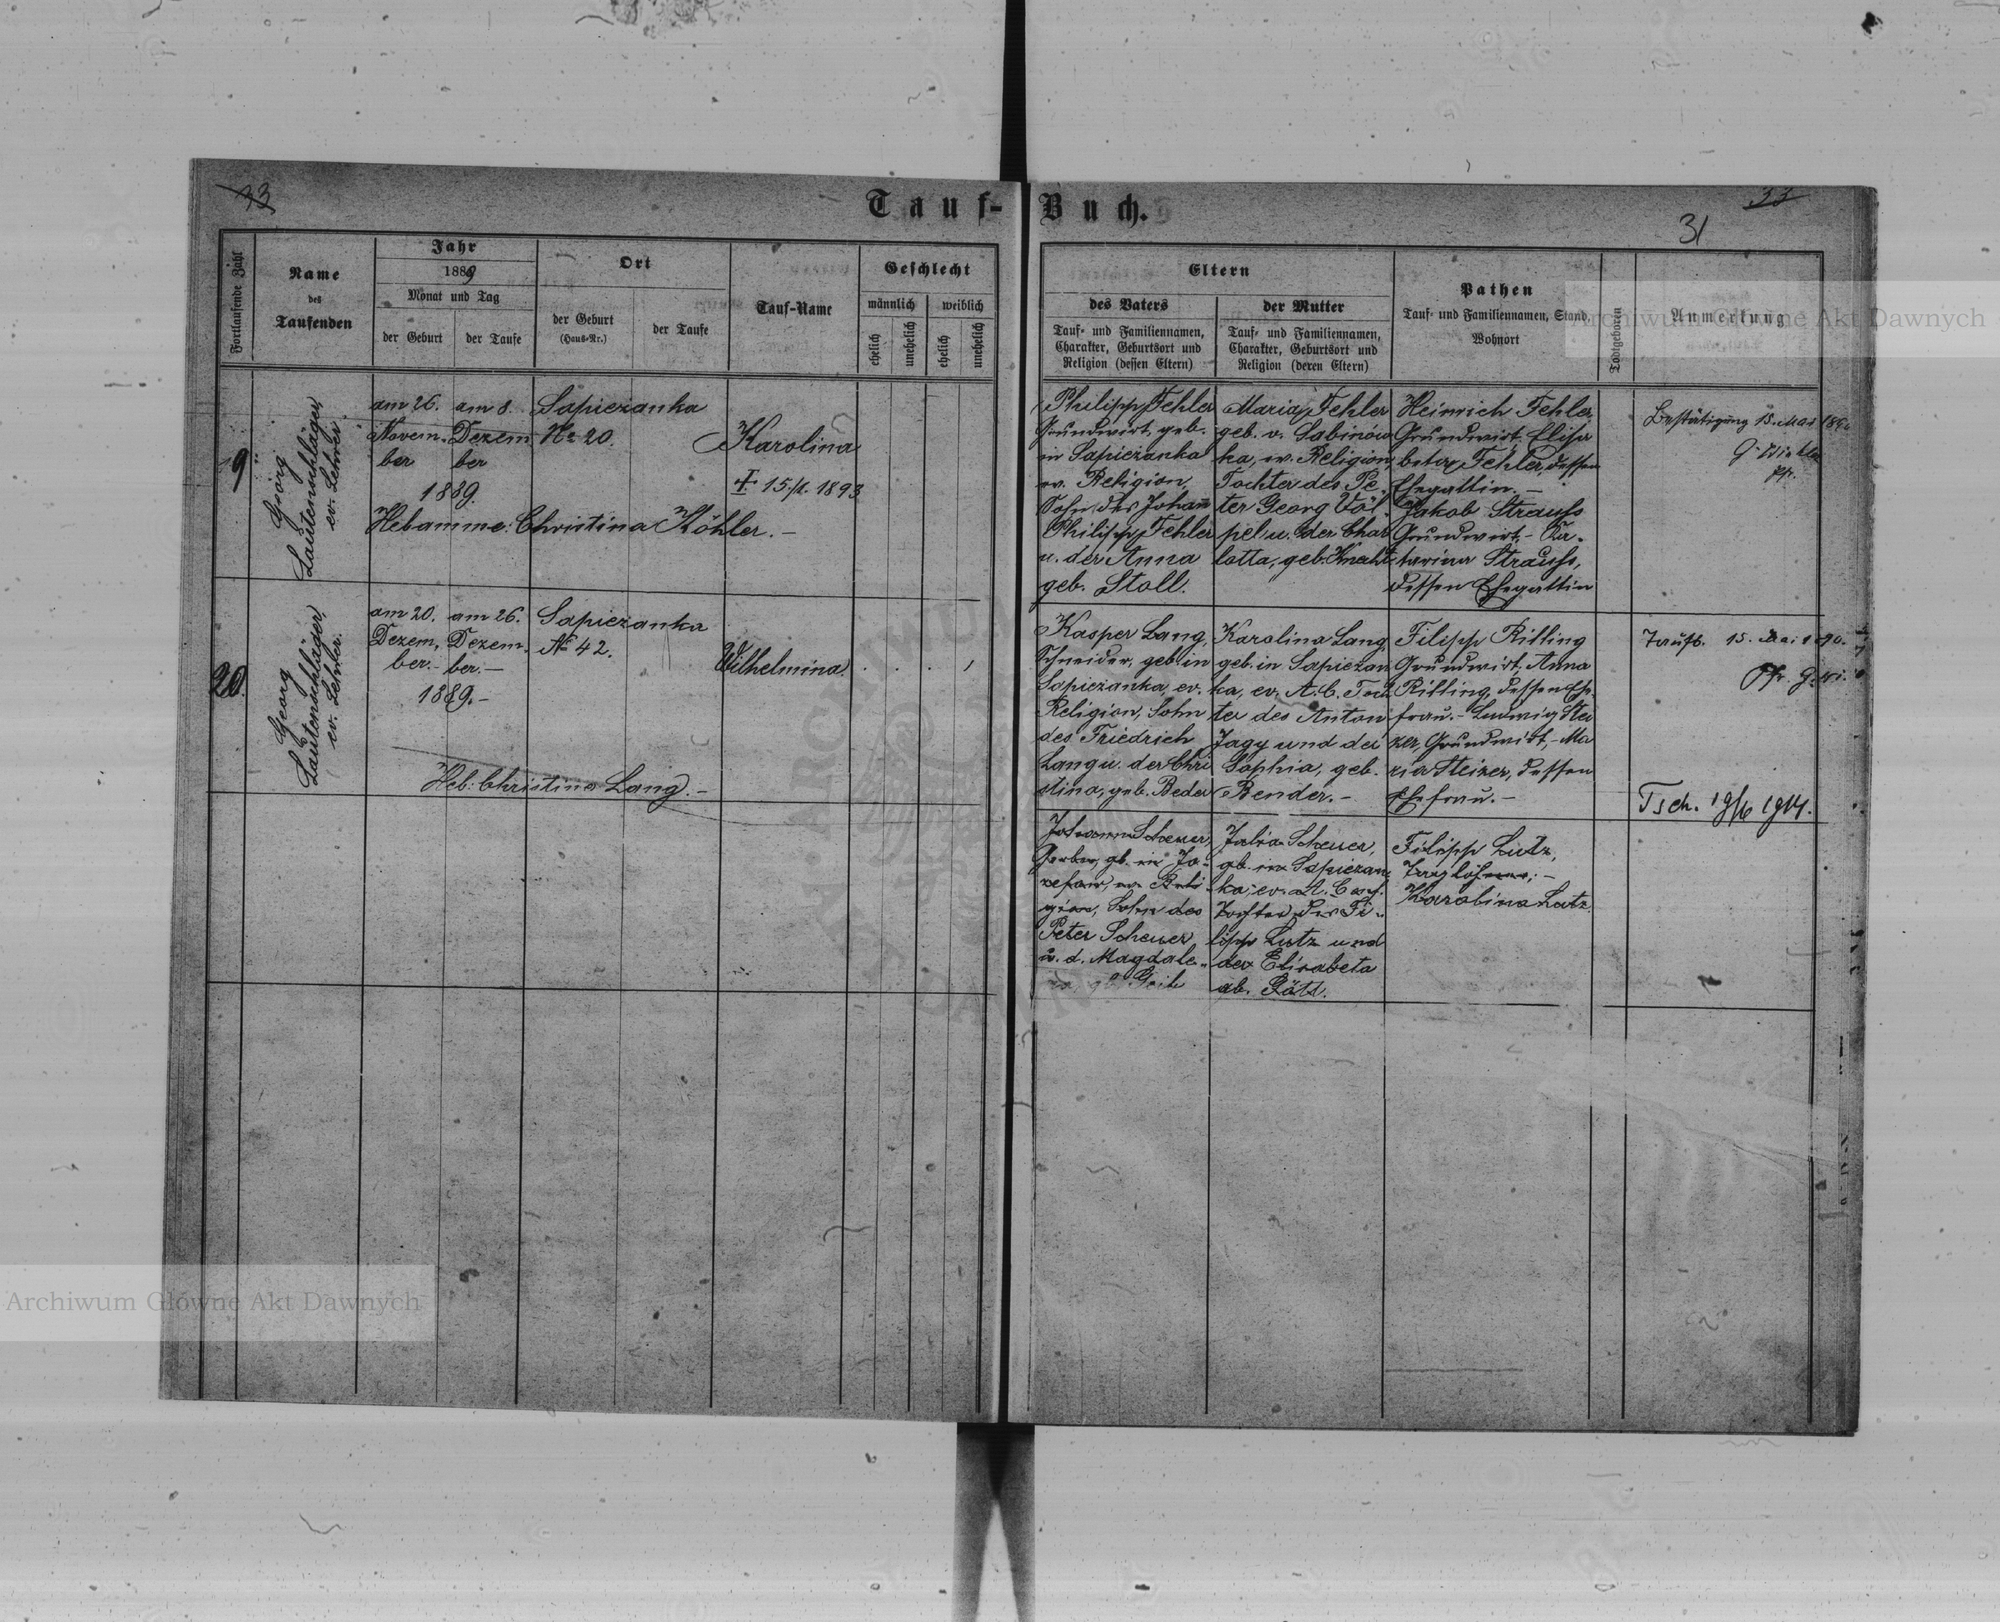 33
Tauf-Buch.
33
31
Fortlaufende Zahl
Name
des
Taufenden
Jahr
1889
Monat und Tag
der Geburt
der Taufe
Ort
der Geburt
(Haus-Nr.)
der Taufe
Tauf-Name
Geschlecht
männlich
weiblich
ehelich
unehelich
ehelich
unehelich
Eltern
des Vaters
Tauf- und Familiennamen,
Charakter, Geburtsort und
Religion (dessen Eltern)
der Mutter
Tauf- und Familiennamen,
Charakter, Geburtsort und
Religion (deren Eltern)
Pathen
Tauf- und Familiennamen, Stand,
Wohnort
Todtgeboren
Anmerkung
Archiwum Główne Akt Dawnych
Georg
Lautenschläger,
ev. Lehrer.
am 26.
Novem-
ber
am 8.
Dezem
ber
1889.
Sapiezanka
No 20.
Karolina
15. 1893
Hebamme: Christina Köhler. -
Philipp Fehler
Grundwirt, geb.
in Sapiezanka
ev. Religion,
Sohn des Johann
Philipp Fehler
u. der Anna
geb. Stoll.
Maria Fehler
geb. v. Sabinów
ka, ev. Religion,
Tochter des Pe-
ter Georg Völ-
pel u. der Char
lotta, geb. Knecht
Heinrich Fehler
Grundwirt. Elisa
beta Fehler, dessen
Ehegattin. -
Jakob Strauss
Grundwirt. - Ka-
tharina Strauss,
dessen Ehegattin
Bestätigung 15. Mai
20.
Georg
Lautenschläger,
ev. Lehrer.
am 20.
Dezem,
ber. -
am 26.
Dezem.
ber. -
1889. -
Sapiezanka
No 42.
Wilhelmina.
Heb: Christina Lang. -
Kasper Lang,
Schneider, geb. in
Sapiezanka, ev.
Religion, Sohn
des Friedrich
Lang u. der Chri
stina, geb. Beder
Karolina Lang,
geb. in Sapiezan
ka, ev. A. C. Toch
ter des Anton
Jagy und der
Sophia, geb.
Bender. -
Filipp Rilling
Grundwirt, Anna
Rilling, dessen Ehe-
frau. - Ludwig Stei
zer, Grundwirt, - Ma
ria Steizer, dessen
Ehefrau. -
15. Mai
Tsch. 19/6 1914.
Johann Scheuer,
Gerber, gb. in Jo-
sefow, ev. Reli-
gion, Sohn des
Peter Scheuer
u. d. Magdale-
Julia Scheuer,
gb. in Sapiezan
ka, ev. A. Conf.
Tochter des Fi-
lipp Lutz und
der Elisabeta
Filipp Lutz,
Taglöhner; -
Karolina Lutz.
Archiwum Główne Akt Dawnych